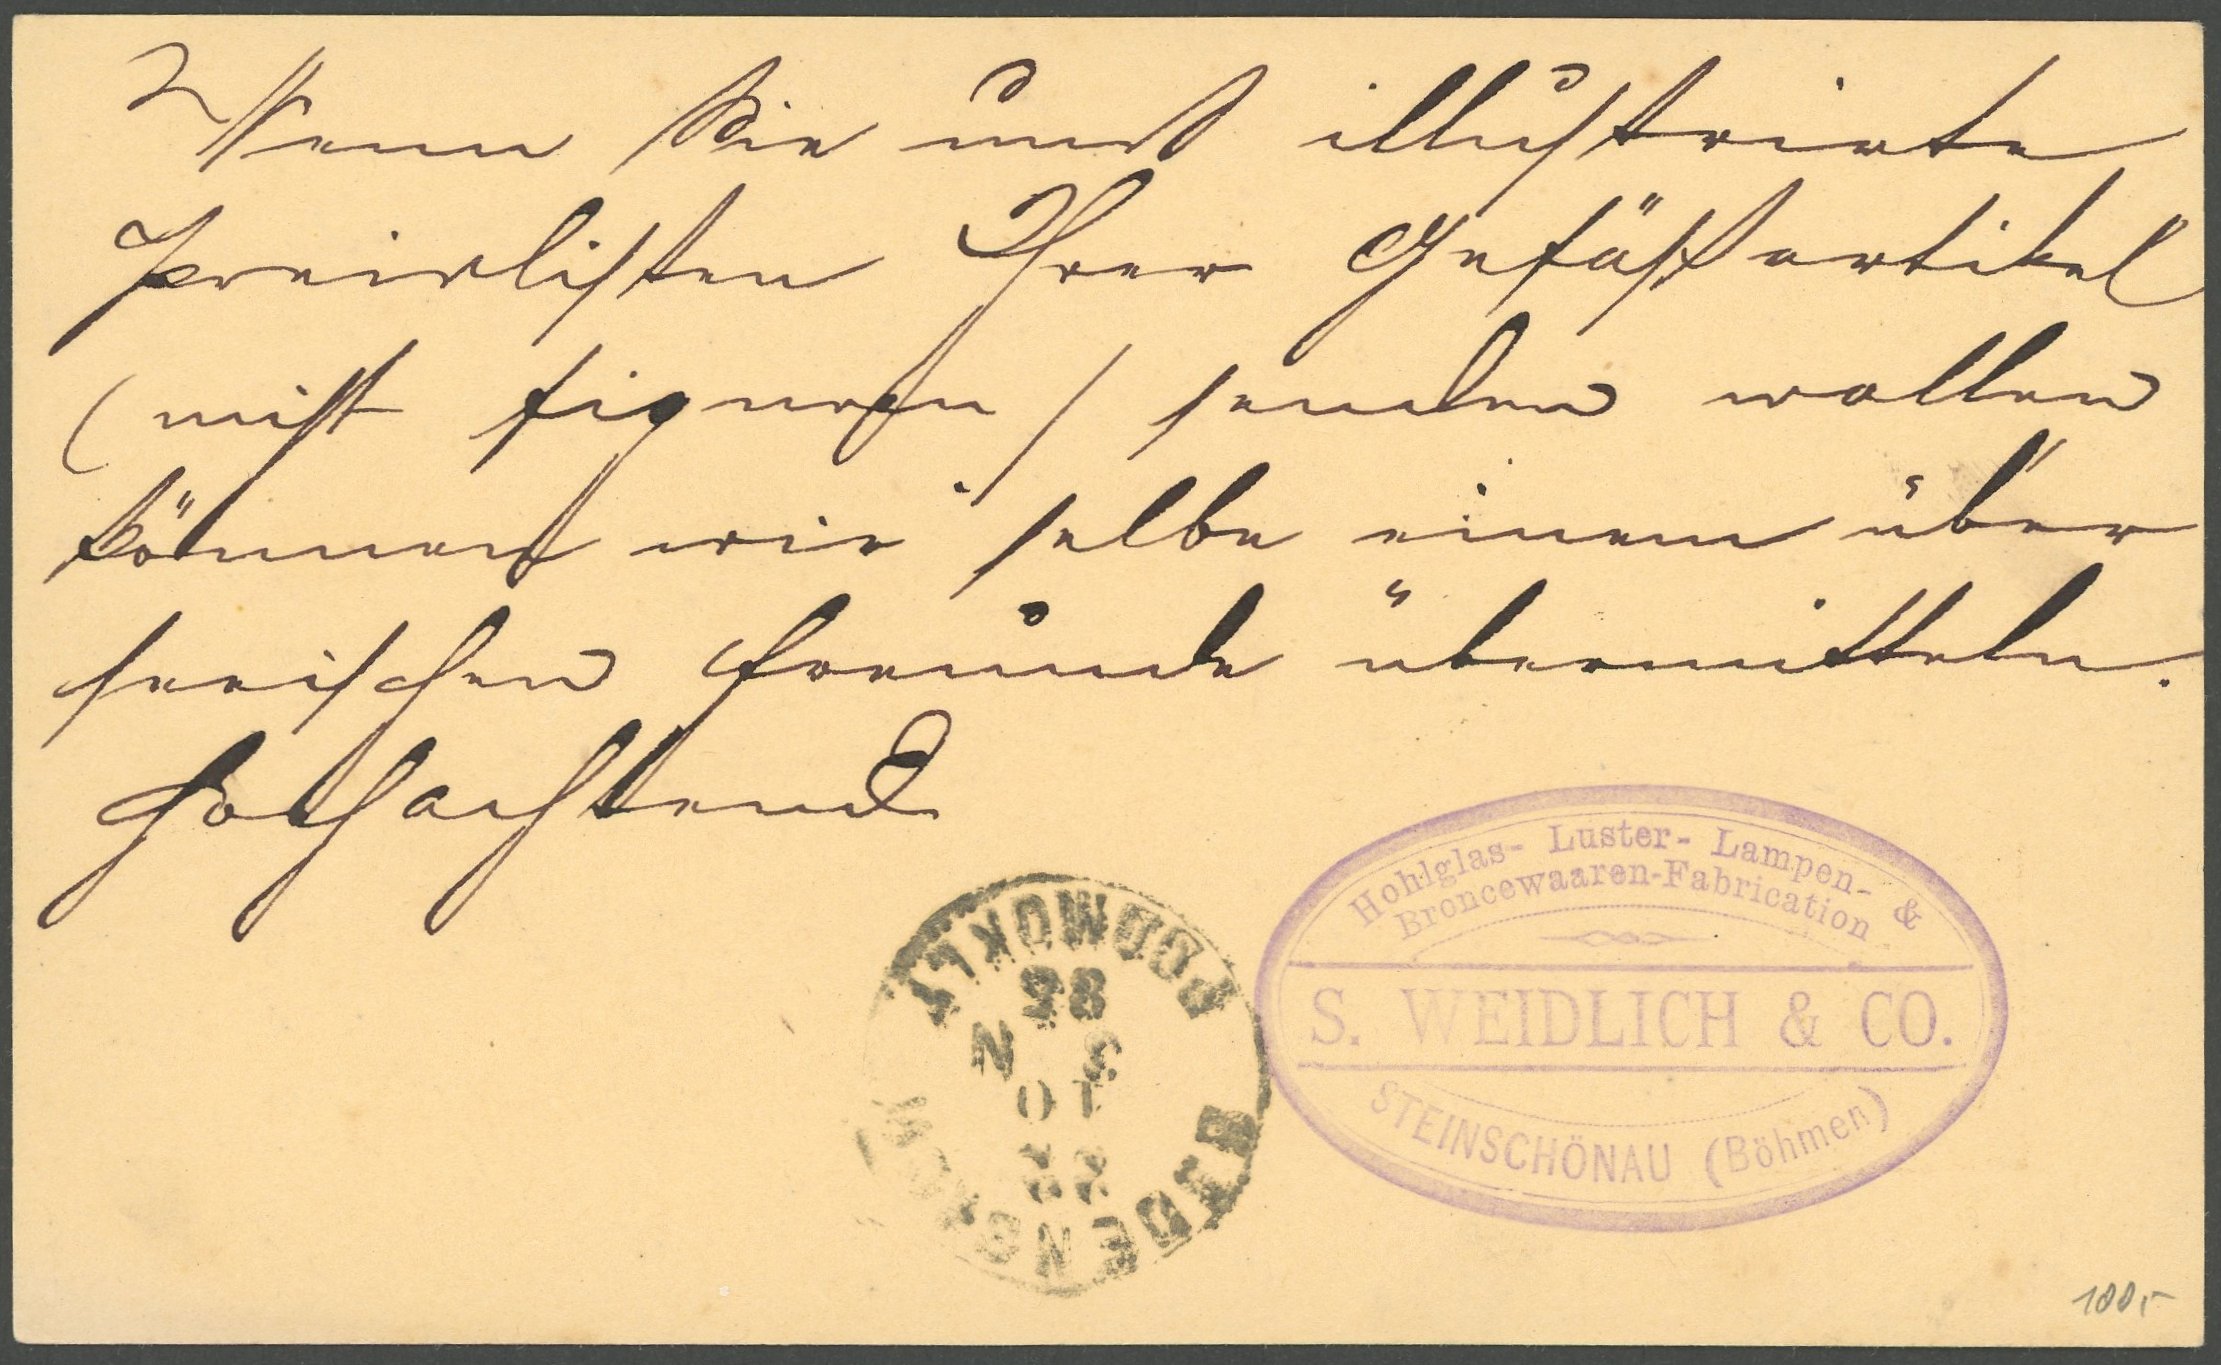 Wenn Sie uns illustrirte
Preislisten Ihrer Gefäßartikel
( Figuren) senden wollen
können wir selbe einem über
seeischen Freunde übermitteln.
Hochachtend
Hohlglas- Luster- Lampen- &
Broncewaaren-Fabrication
S. WEIDLICH & CO.
STEINSCHÖNAU (Böhmen)
PODMOKLY
100,-